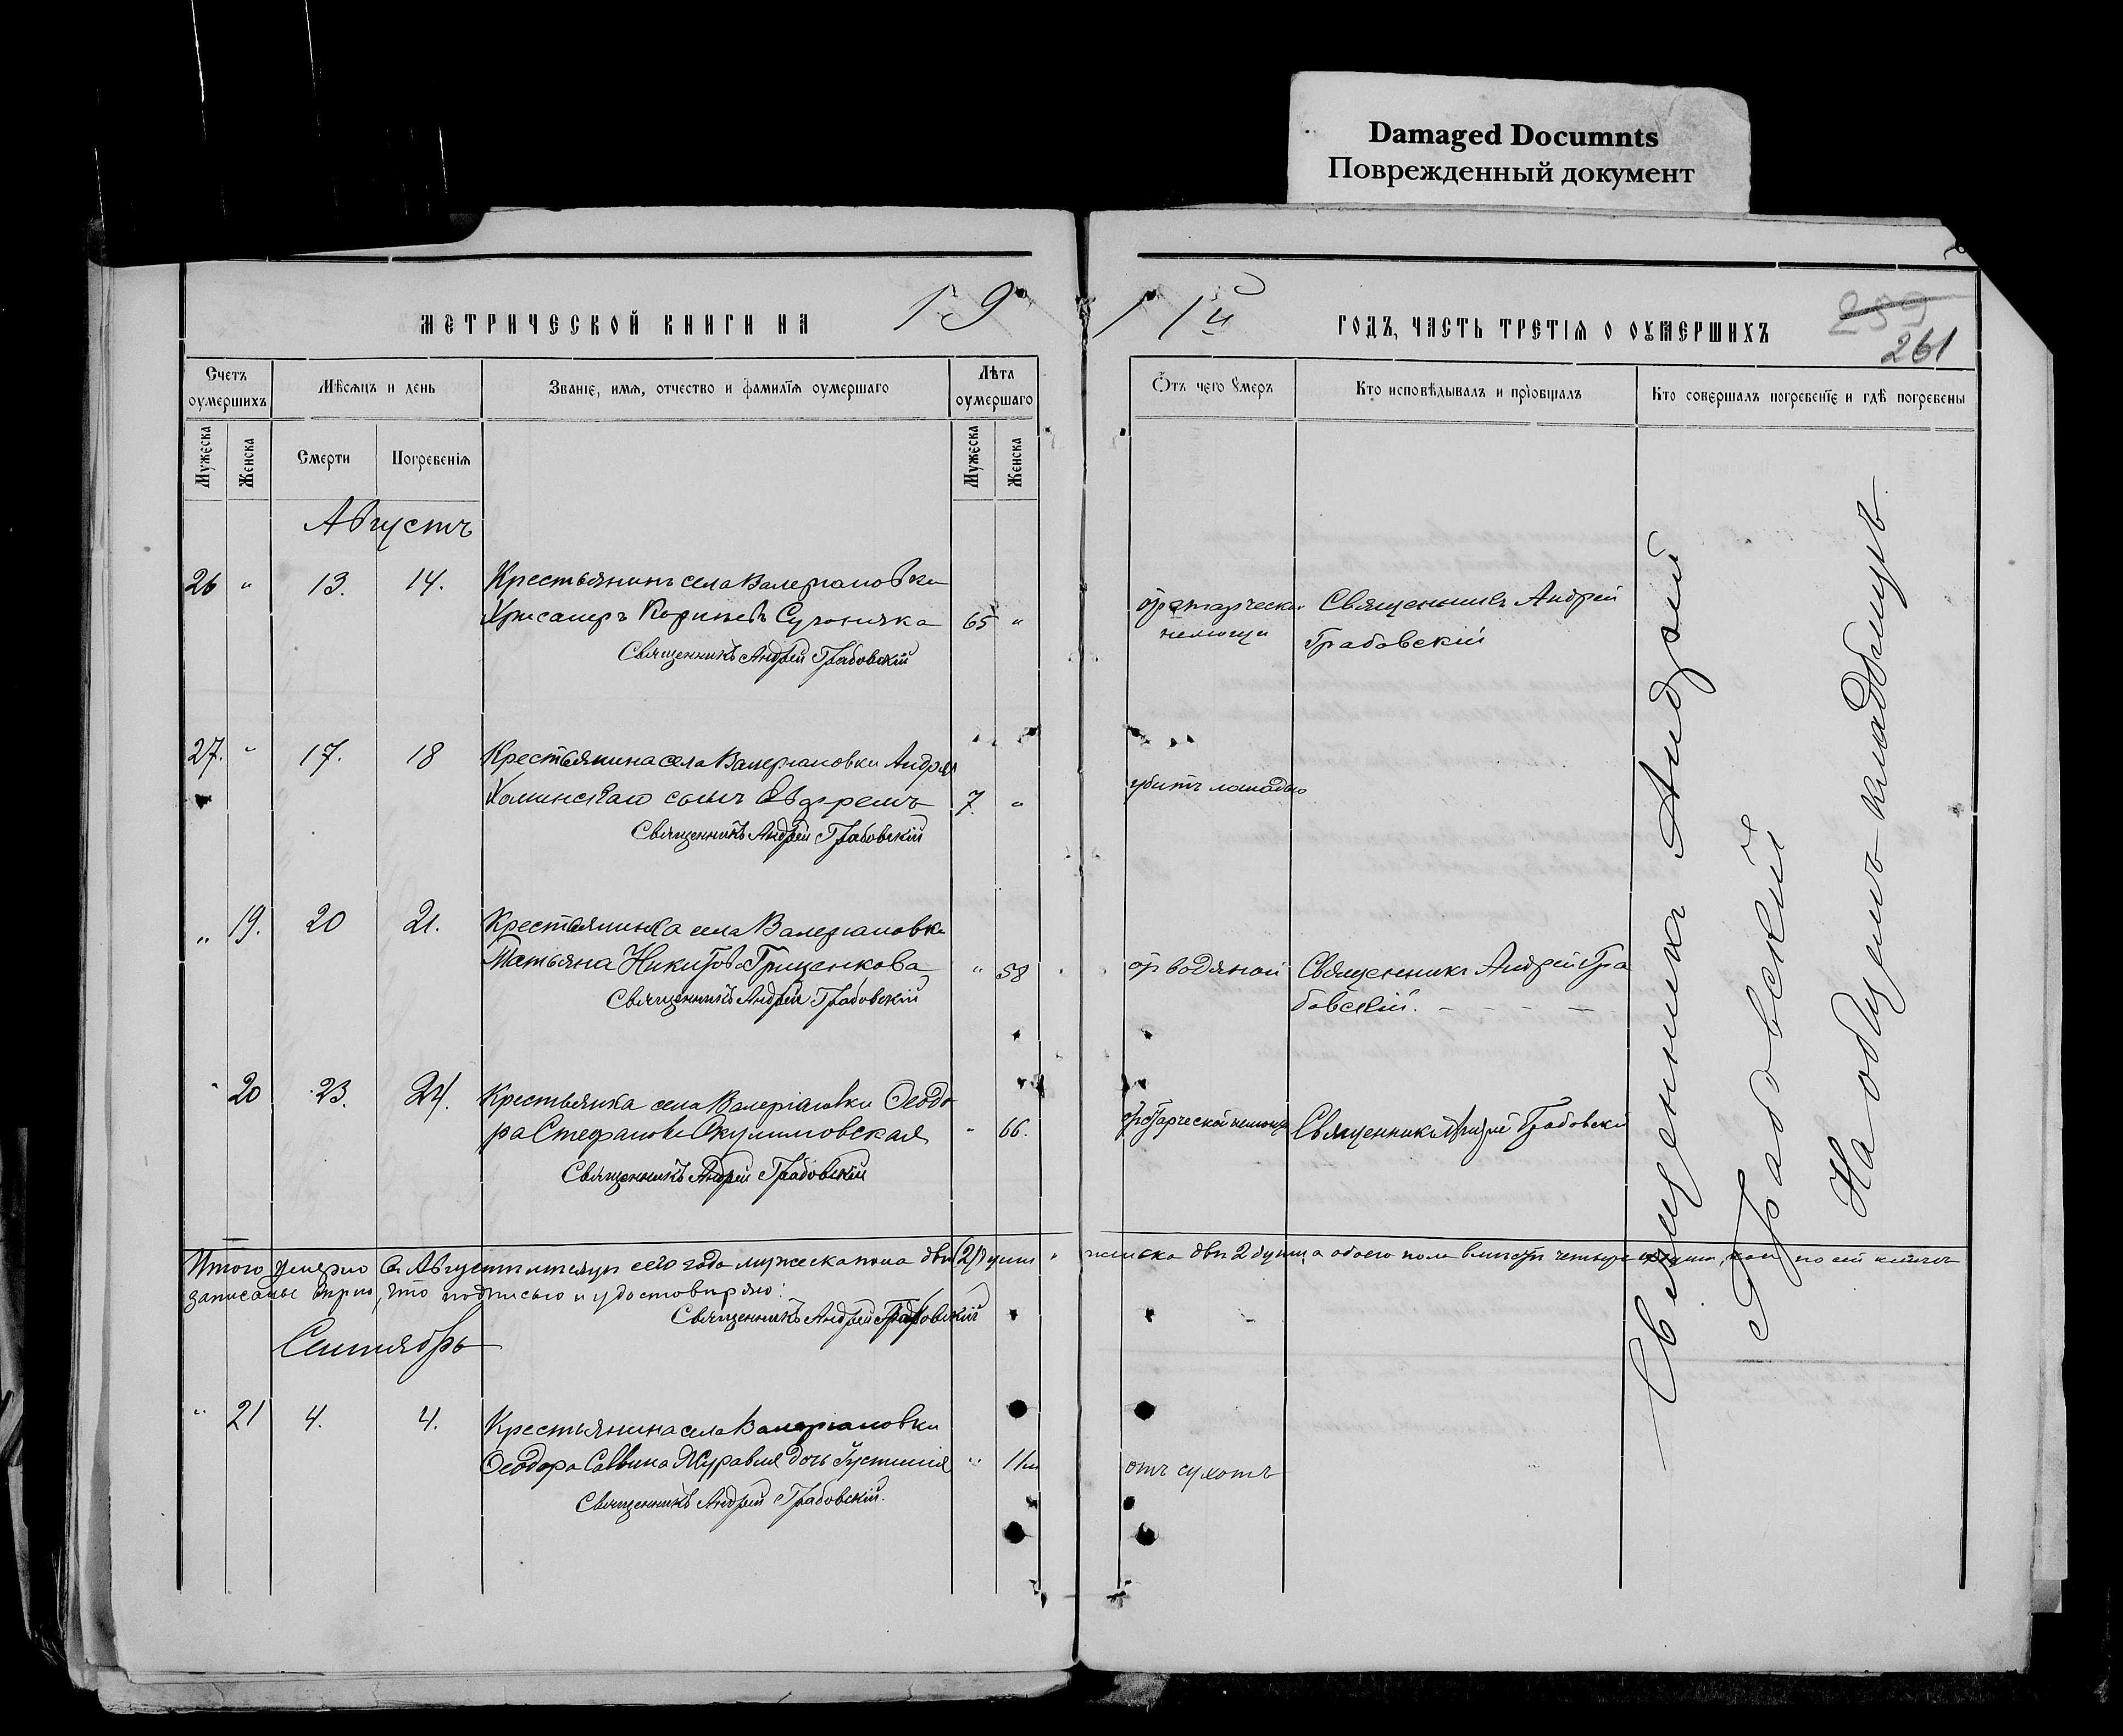 Damaged Documnts
Поврежденный документ
МЕТРИЧЕСКОЙ КНИГИ НА 19
11й ГОДЪ, ЧАСТЬ ТРЕТІЯ О ОУМЕРШИХЪ
259
261
Счетъ оумершихъ
Мѣсяцъ и день
Званіе, имя, отчество и фамилія оумершаго
Лѣта оумершаго
Отъ чего умеръ
Кто исповѣдывалъ и пріобщалъ
Кто совершалъ погребеніе и гдѣ погребены
Мужеска
Женска
Смерти
Погребенія
Мужеска
Женска
Августъ
26 " 13. 14. Крестьянинъ села Валеріановки
65 "
Священникъ Андрей Грабовскій
немощи
Священникъ Андрей
Грабовскій
27. " 17. 18 Крестьянина села Валеріановки Андрея
сынъ 7. "
Священникъ Андрей Грабовскій
убитъ лошадью
" 19. 20 21. Крестьянка села Валеріановки
Татьяна Никитова Гриценкова " 58
Священникъ Андрей Грабовскій
отъ водяной
Священникъ Андрей Гра
бовскій.
" 20 23. 24. Крестьянка села Валеріановки Ѳеодо
ра Стефанова Якулиновская " 66.
Священникъ Андрей Грабовскій
Священникъ Андрей Грабовскій
Итого умерло въ Августѣ мѣсяцѣ сего года мужеска пола двѣ (2) души женска двѣ 2 души, а обоего пола вмѣстѣ четыре души, по сей книгѣ
записаны вѣрно, что подписью и удостовѣряю:
Священникъ Андрей Грабовскій
Сентябрь
" 21 4. 4. Крестьянина села Валеріановки
Ѳеодора Саввина Журавля дочь Іустинія " 11м
Священникъ Андрей Грабовскій.
отъ сухотъ
Священникъ Андрей
Грабовскій
На общемъ кладбищѣ.